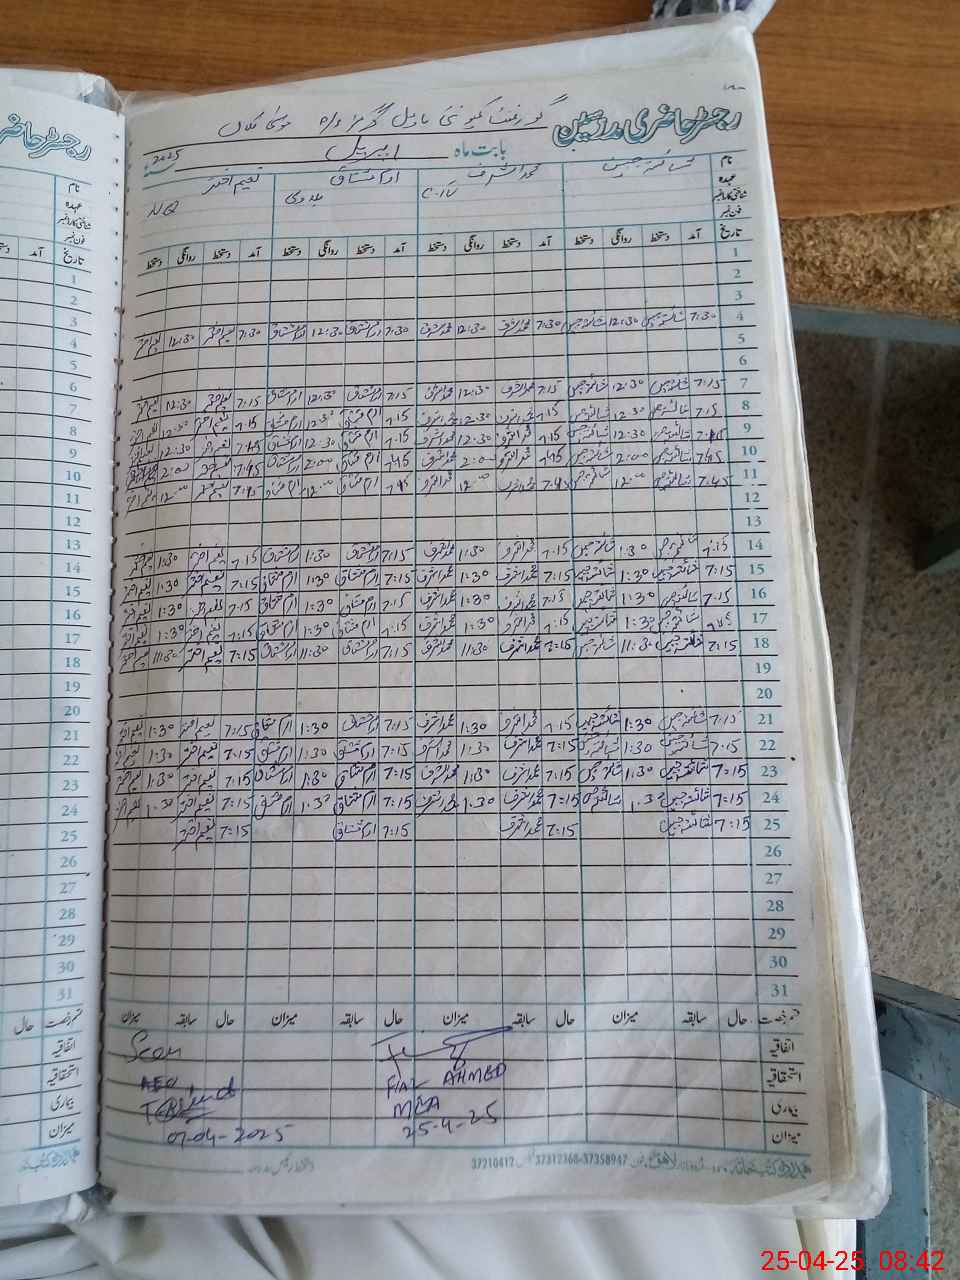 رجسٹر حاضری مدرسین گورنمنٹ کمیونٹی ماڈل گرلز
بابت ماہ اپریل 2025ء
نام شائستہ جبین محمد اشرف ارم مشتاق نعیم اختر
عہدہ C-IV N.Q
شناختی کارڈ نمبر
فون نمبر
تاریخ آمد دستخط روانگی دستخط آمد دستخط روانگی دستخط آمد دستخط روانگی دستخط آمد دستخط روانگی دستخط
1
2
3
4 7:30 شائستہ جبین 12:30 شائستہ جبین 7:30 محمد اشرف 12:30 محمد اشرف 7:30 ارم مشتاق 12:30 ارم مشتاق 7:30 نعیم اختر 12:30 نعیم اختر
5
6
7 7:15 شائستہ جبین 12:30 شائستہ جبین 7:15 محمد اشرف 12:30 محمد اشرف 7:15 ارم مشتاق 12:30 ارم مشتاق 7:15 نعیم اختر 12:30 نعیم اختر
8 7:15 شائستہ جبین 12:30 شائستہ جبین 7:15 محمد اشرف 12:30 محمد اشرف 7:15 ارم مشتاق 12:30 ارم مشتاق 7:15 نعیم اختر 12:30 نعیم اختر
9 شائستہ جبین 12:30 شائستہ جبین 7:15 محمد اشرف 12:30 محمد اشرف 7:15 ارم مشتاق 12:30 ارم مشتاق نعیم اختر 12:30 نعیم اختر
10 7:45 شائستہ جبین 2:00 شائستہ جبین 7:45 محمد اشرف 2:00 محمد اشرف 7:45 ارم مشتاق 2:00 ارم مشتاق 7:45 نعیم اختر 2:00 نعیم اختر
11 7:45 شائستہ جبین 12:00 شائستہ جبین 7:45 محمد اشرف 12:00 محمد اشرف 7:45 ارم مشتاق 12:00 ارم مشتاق 7:45 نعیم اختر 12:00 نعیم اختر
12
13
14 7:15 شائستہ جبین 1:30 شائستہ جبین 7:15 محمد اشرف 1:30 محمد اشرف 7:15 ارم مشتاق 1:30 ارم مشتاق 7:15 نعیم اختر 1:30 نعیم اختر
15 7:15 شائستہ جبین 1:30 شائستہ جبین 7:15 محمد اشرف 1:30 محمد اشرف 7:15 ارم مشتاق 1:30 ارم مشتاق 7:15 نعیم اختر 1:30 نعیم اختر
16 7:15 شائستہ جبین 1:30 شائستہ جبین 7:15 محمد اشرف 1:30 محمد اشرف 7:15 ارم مشتاق 1:30 ارم مشتاق 7:15 نعیم اختر 1:30 نعیم اختر
17 شائستہ جبین 1:30 شائستہ جبین 7:15 محمد اشرف 1:30 محمد اشرف 7:15 ارم مشتاق 1:30 ارم مشتاق 7:15 نعیم اختر 1:30 نعیم اختر
18 7:15 شائستہ جبین 11:30 شائستہ جبین 7:15 محمد اشرف 11:30 محمد اشرف 7:15 ارم مشتاق 11:30 ارم مشتاق 7:15 نعیم اختر 11:30 نعیم اختر
19
20
21 7:15 شائستہ جبین 1:30 شائستہ جبین 7:15 محمد اشرف 1:30 محمد اشرف 7:15 ارم مشتاق 1:30 ارم مشتاق 7:15 نعیم اختر 1:30 نعیم اختر
22 7:15 شائستہ جبین 1:30 شائستہ جبین 7:15 محمد اشرف 1:30 محمد اشرف 7:15 ارم مشتاق 1:30 ارم مشتاق 7:15 نعیم اختر 1:30 نعیم اختر
23 7:15 شائستہ جبین 1:30 شائستہ جبین 7:15 محمد اشرف 1:30 محمد اشرف 7:15 ارم مشتاق 1:30 ارم مشتاق 7:15 نعیم اختر 1:30 نعیم اختر
24 7:15 شائستہ جبین 1:30 شائستہ جبین 7:15 محمد اشرف 1:30 محمد اشرف 7:15 ارم مشتاق 1:30 ارم مشتاق 7:15 نعیم اختر 1:30 نعیم اختر
25 7:15 شائستہ جبین 7:15 محمد اشرف 7:15 ارم مشتاق 7:15 نعیم اختر
26
27
28
29
30
31
حال سابقہ میزان حال سابقہ میزان حال سابقہ میزان حال سابقہ میزان
اتفاقیہ
استحقاقیہ AHMED AEO
بیماری MEA
میزان 25-4-25 07-04-2025
37210412 37312368-37358947
رجسٹر حاضر
نام
عہدہ
شناختی کارڈ نمبر
فون نمبر
تاریخ آمد
1
2
3
4
5
6
7
8
9
10
11
12
13
14
15
16
17
18
19
20
21
22
23
24
25
26
27
28
29
30
31
حال
اتفاقیہ
استحقاقیہ
بیماری
میزان
25-04-25 08:42